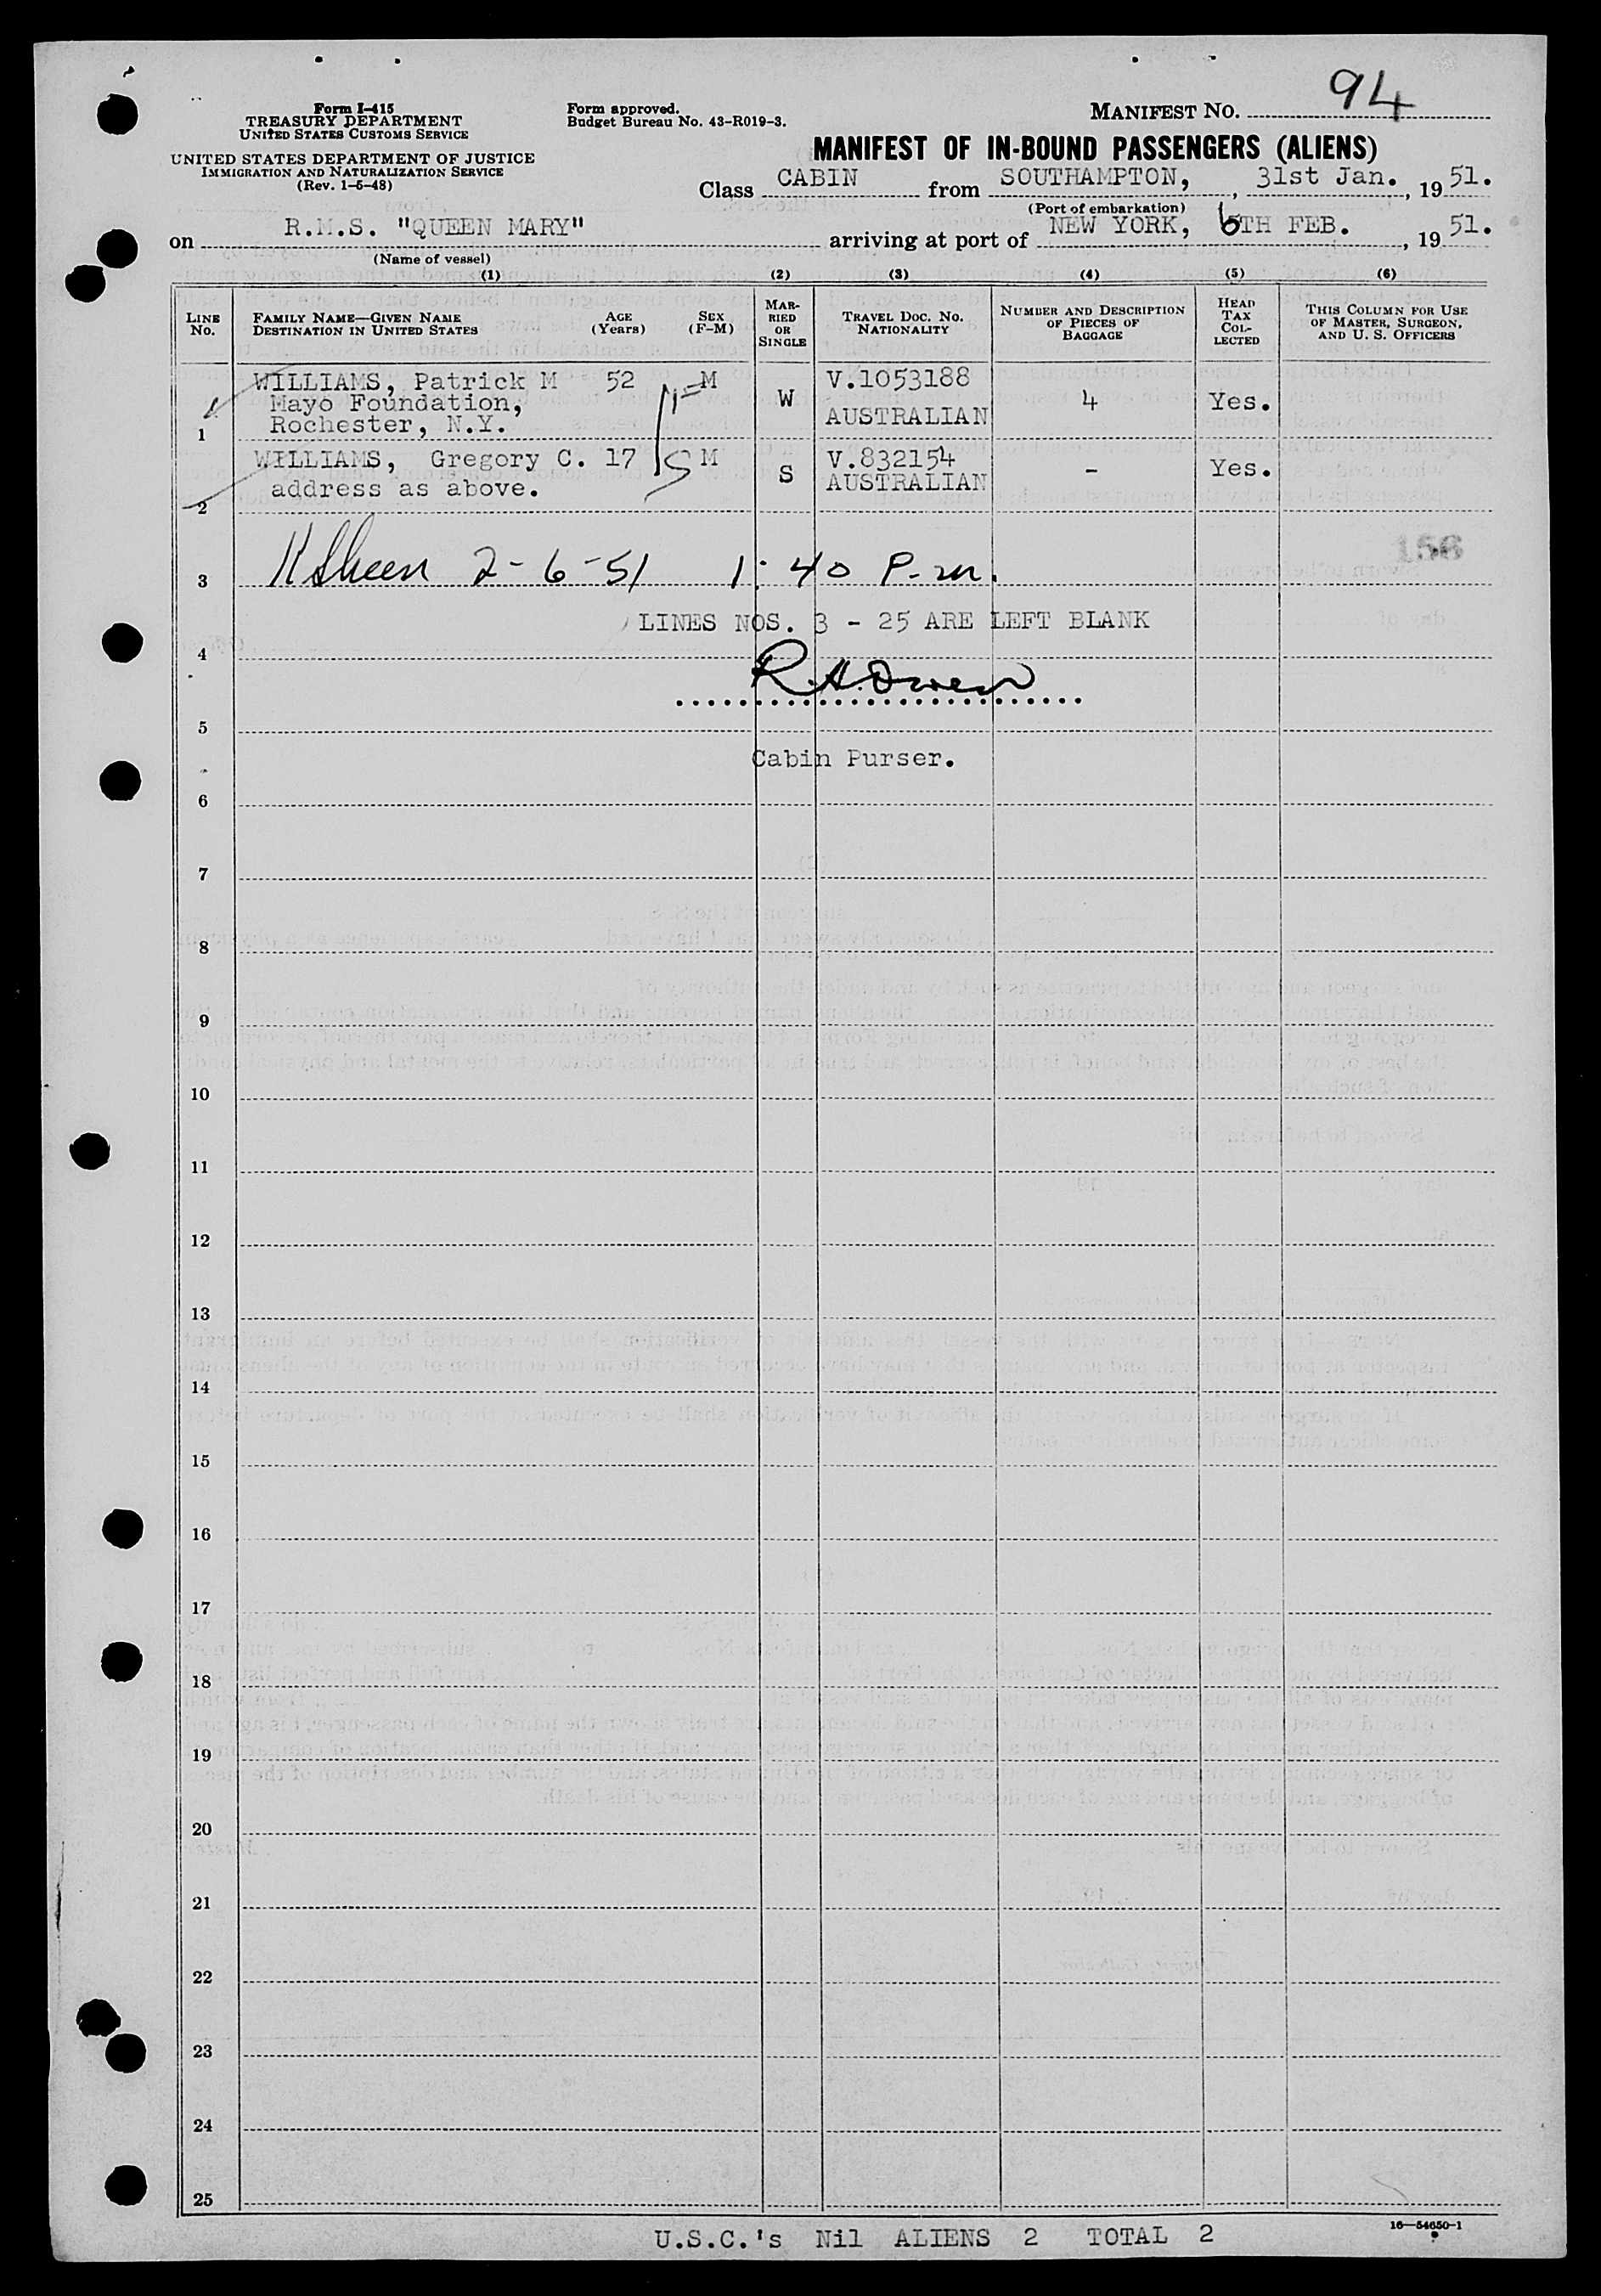 94
Form I-415
TREASURY DEPARTMENT
UNITED STATES CUSTOMS SERVICE
Form approved.
Budget Bureau No. 43-R019-3.
MANIFEST NO.
UNITED STATES DEPARTMENT OF JUSTICE
IMMIGRATION AND NATURALIZATION SERVICE
(Rev. 1-6-48)
MANIFEST OF IN-BOUND PASSENGERS (ALIENS)
Class CABIN from SOUTHAMPTON, , 31st Jan. , 1951.
(Port of embarkation)
on R.M.S. "QUEEN MARY" arriving at port of NEW YORK, 6TH FEB. , 1951.
(Name of vessel)
(1) (2) (3) (4) (5) (6)
LINE No. FAMILY NAME—GIVEN NAME DESTINATION IN UNITED STATES AGE (Years) SEX (F-M) MARRIED OR SINGLE TRAVEL DOC. NO. NATIONALITY NUMBER AND DESCRIPTION OF PIECES OF BAGGAGE HEAD TAX COLLECTED THIS COLUMN FOR USE OF MASTER, SURGEON, AND U. S. OFFICERS
WILLIAMS, Patrick M 52 M V.1053188
Mayo Foundation, W AUSTRALIAN 4 Yes.
1 Rochester, N.Y.
WILLIAMS, Gregory C. 17 M V.832154
address as above. S AUSTRALIAN - Yes.
2
156
3 2-6-51 1:40 P.m.
LINES NOS. 3 - 25 ARE LEFT BLANK
4
R.H.Owen
5
Cabin Purser.
6
7
8
9
10
11
12
13
14
15
16
17
18
19
20
21
22
23
24
25
16—54650-1
U.S.C.'s Nil ALIENS 2 TOTAL 2